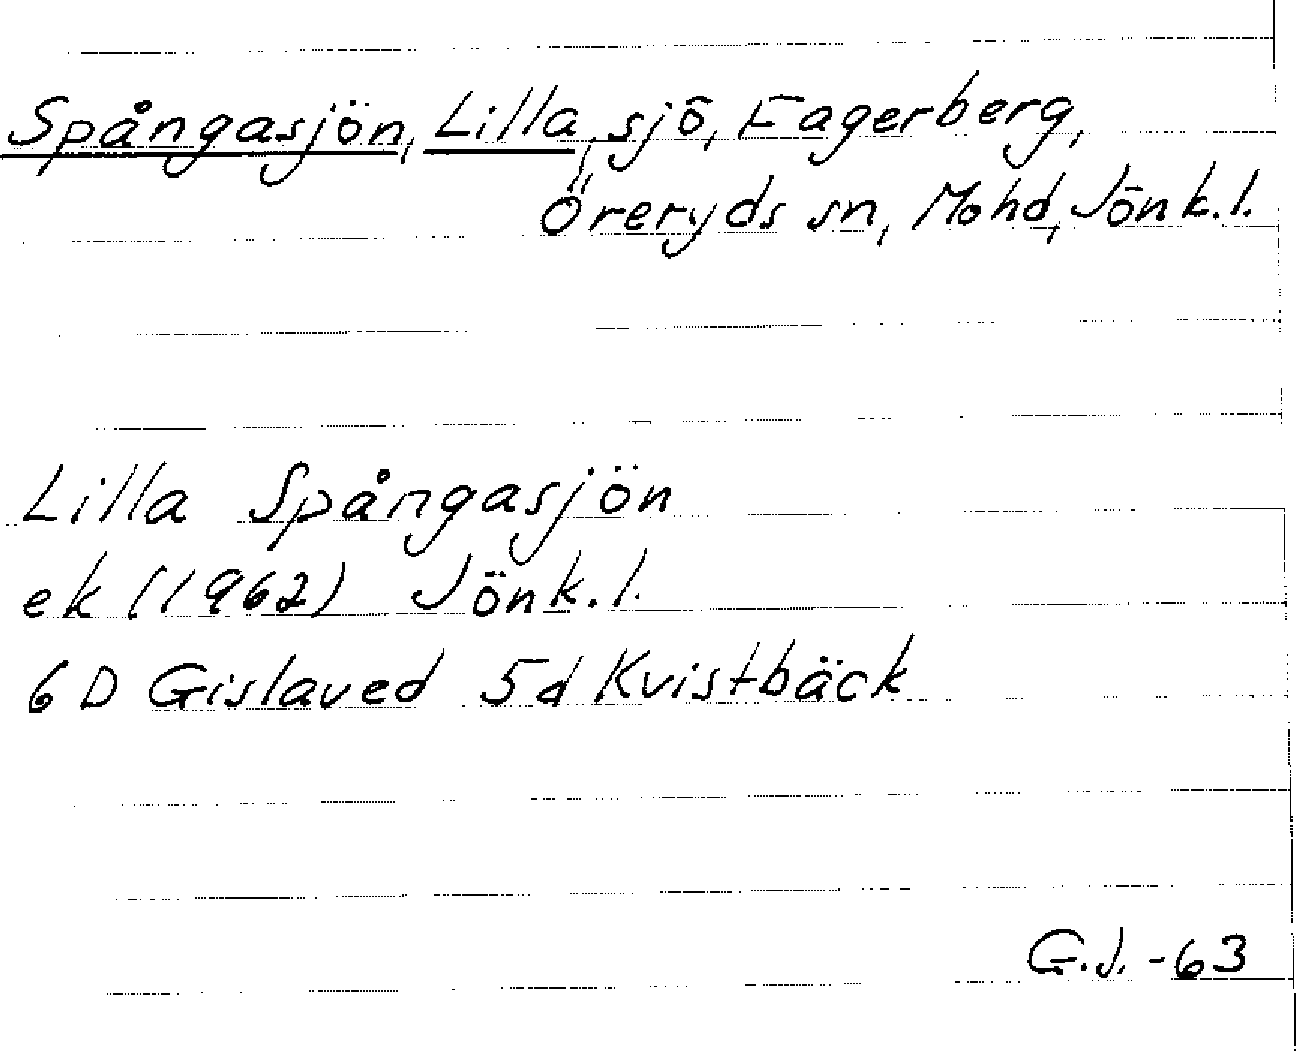 Spångasjön, Lilla, sjö, Fagerberg,
Öreryds sn, Mohd, Jönk.l.
Lilla Spångasjön
ek (1962) Jönk.l.
6D Gislaved 5d Kvistbäck
G.J. -63